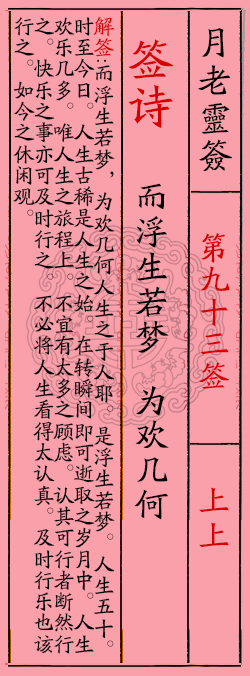 月老靈簽
第九十三签
上上
签诗
而浮生若梦 为欢几何
解签:而浮生若梦，为欢几何人生之于人耶。是浮生若梦。人生五十。
时至今日。人生古稀是人生之始。在转瞬间即可逝取之岁月中。人生
欢乐几多。唯人生之旅程上。不宜有太多之顾虑。认其可行者断然行
之。快乐之事亦可及时行之。不必将人生看得太认真。及时行乐也该
行之。如今之休闲观。